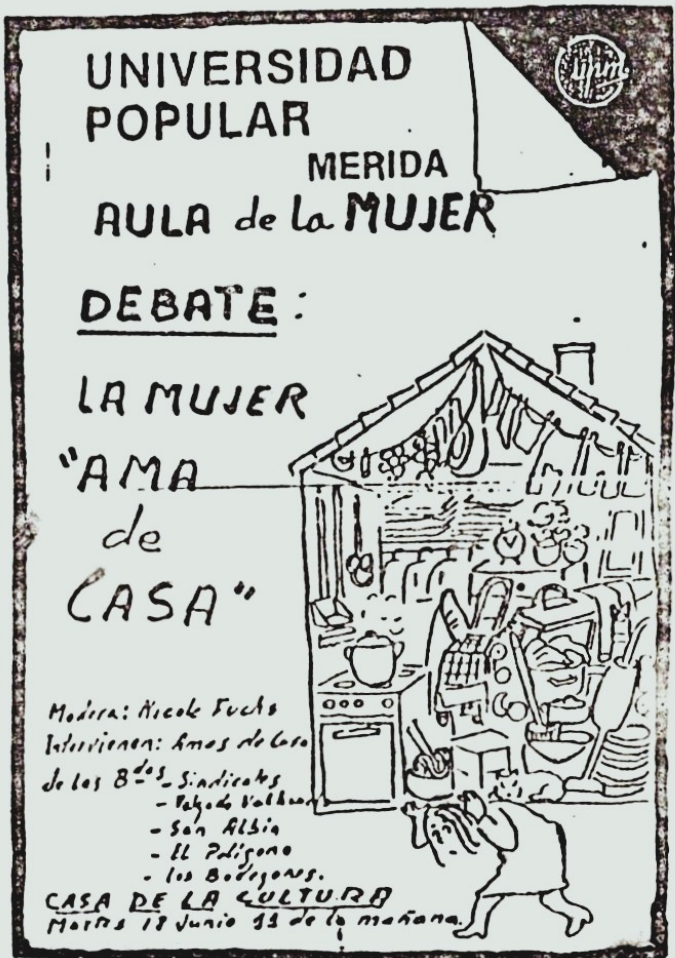 UNIVERSIDAD
POPULAR
MERIDA
AULA de la MUJER
DEBATE:
LA MUJER
"AMA
de
CASA"
Modera: Nicole Fuchs
Intervienen: Amas de Casa
de las Bdas - Sindicales
- San Albín
- El Polígono
- los Bodegones.
CASA DE LA CULTURA
Martes 18 Junio 11 de la mañana.
upm